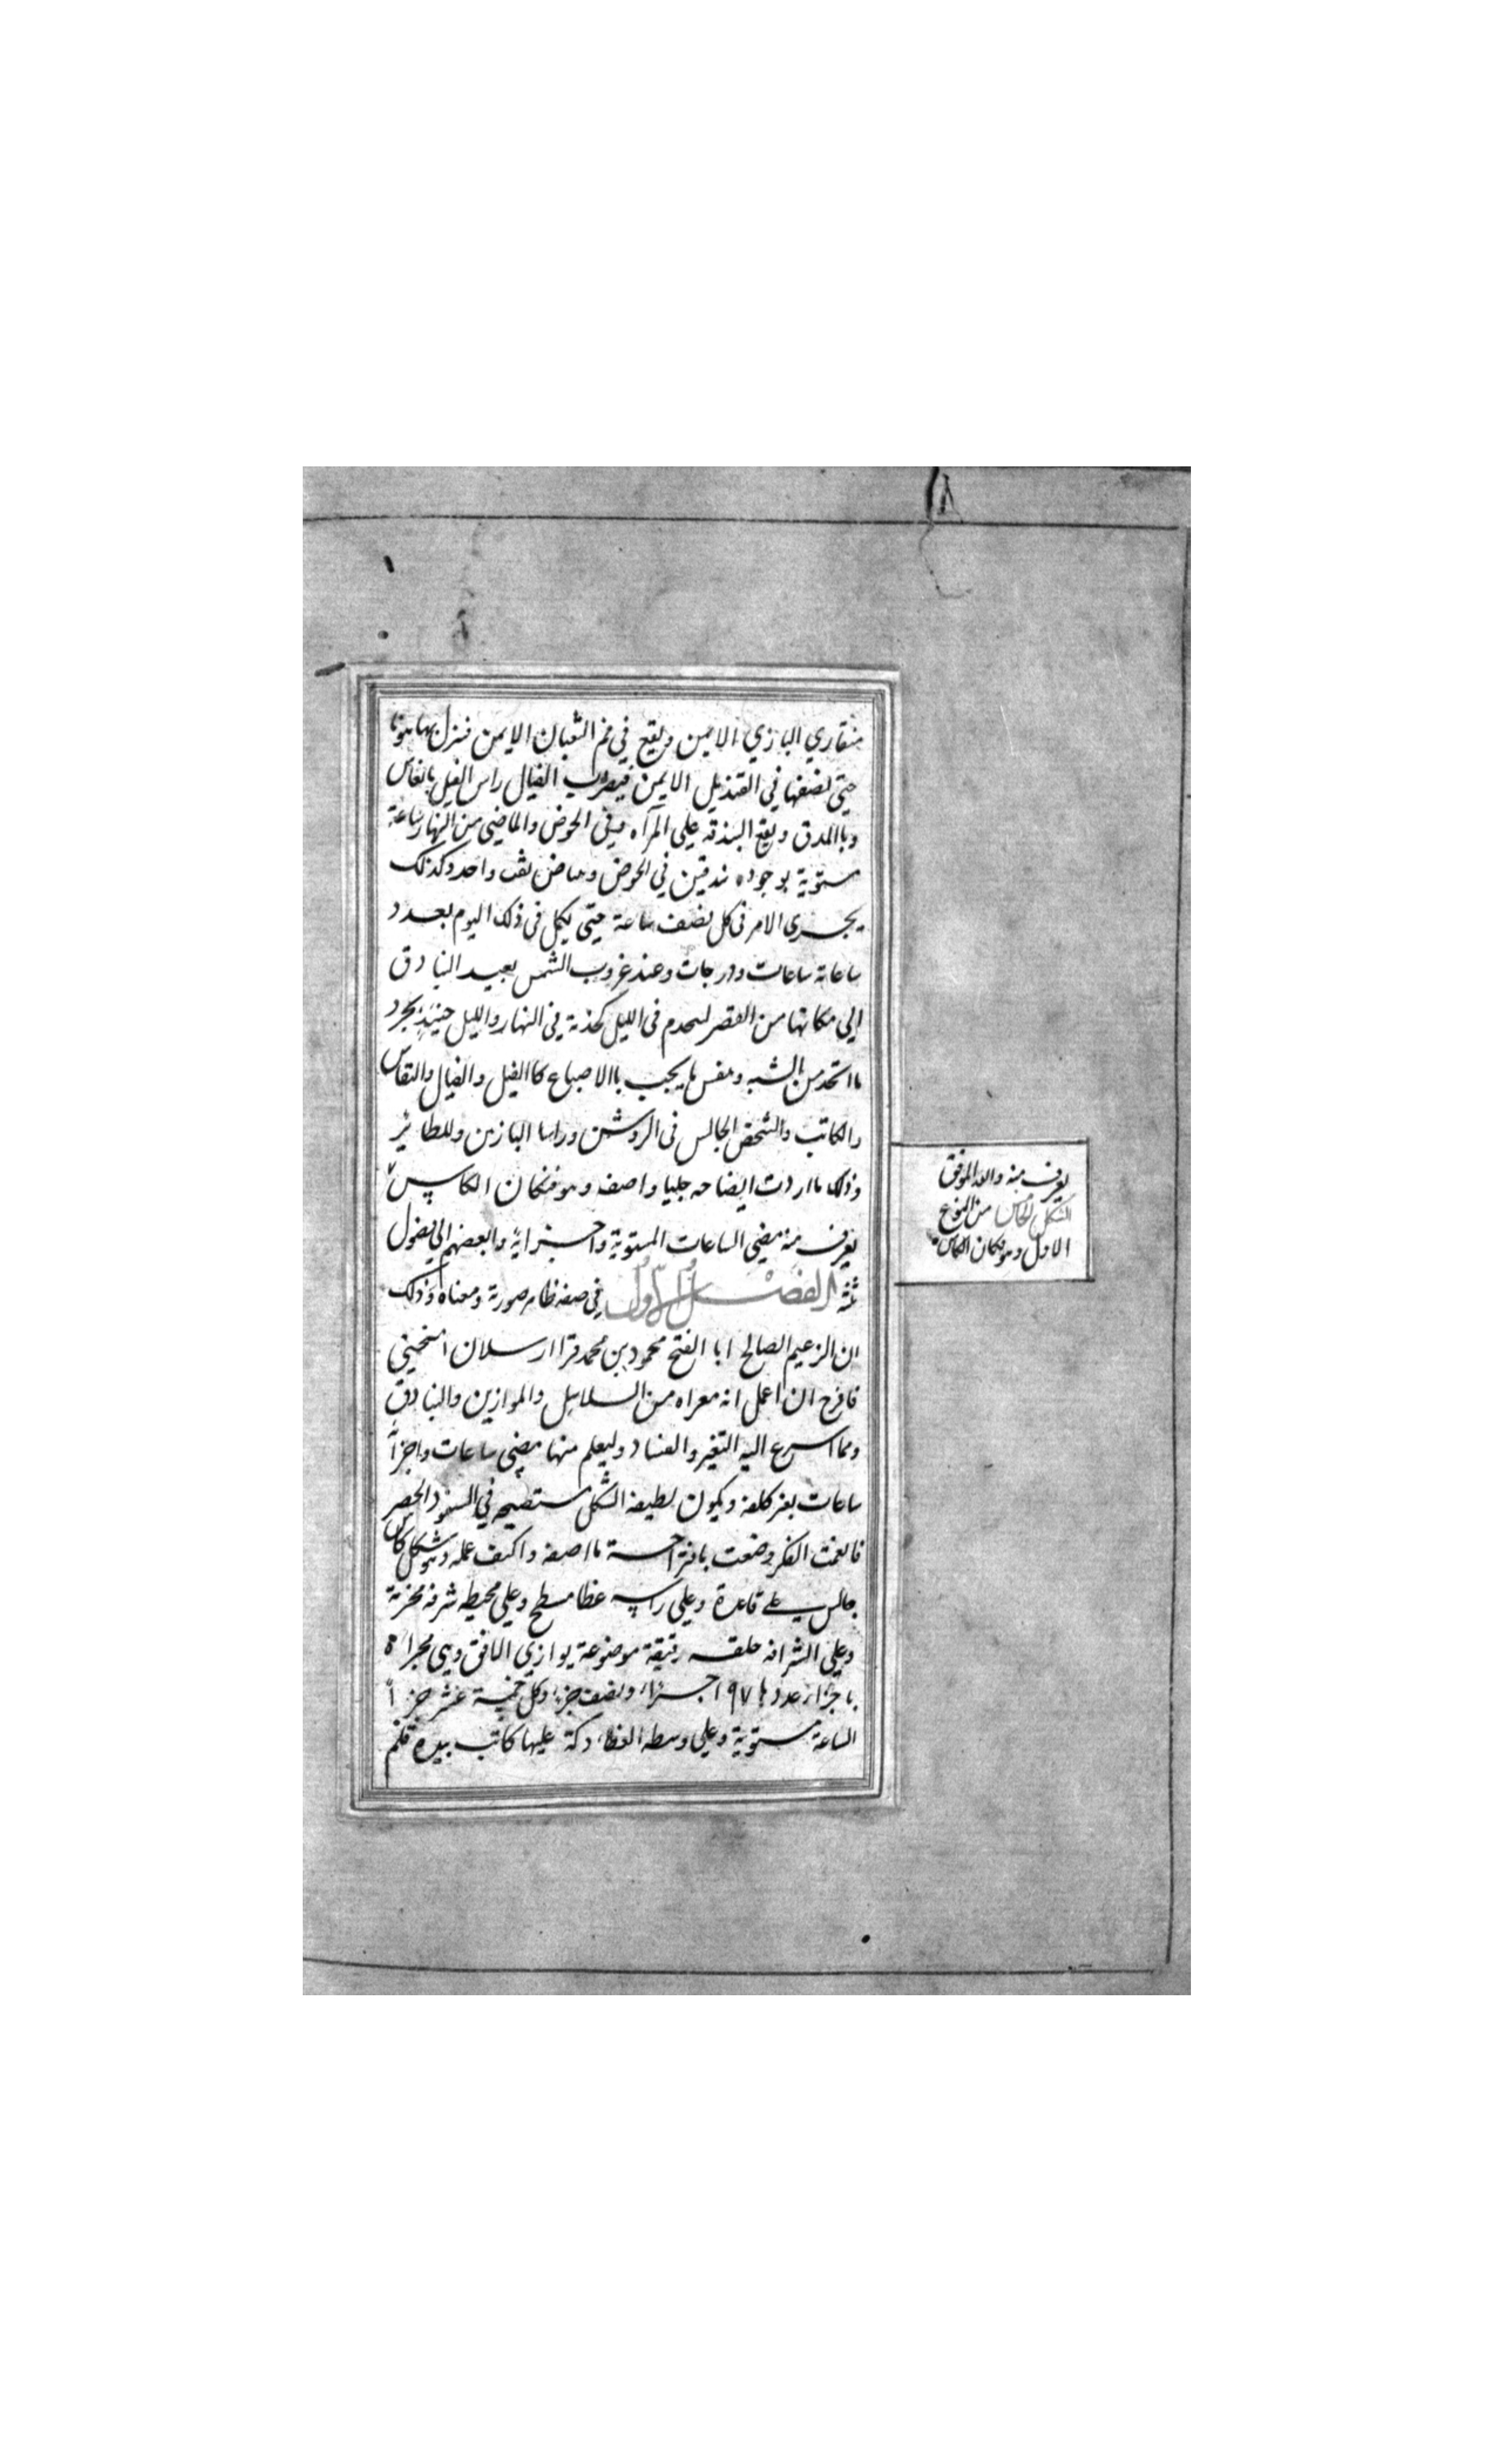 منقاري البازي الايمن ويقع في فم الثعبان الايمن فينزل بها هونا
حتى يضعها في القنديل الايمن فيضرب الفيال راس الفيل بالفاس
وباالمدق ويقع البندقه على المرآه وفي الحوض والماضي من النهار ساعة
مستوية بوجود بندقتين في الحوض وبياض ثقب واحد وكذلك
يجرى الامر فى كل نصف ساعة حتى يكمل فى ذلك اليوم بعدد
ساعاته ساعات ودرجات وعند غروب الشمس يعيد البنادق
الي مكانها من القصر لتخدم فى الليل كخدمة في النهار والليل حينئذ يجرد
مااتخذ من الشبه ونفس ما يجب باالاصباغ كاالفيل والفيال والنقاس
والكاتب والشخص الجالس فى الروشن وراسا البازين وللطائر
وذلك مااردت ايضاحه جليا واصف وهو فنكان الكاس
يعرف منه مضي الساعات المستوية واجزائها والبعضهم الى فصول
ثلثه الفصل الاول في صفه ظاهر صورة ومعناه وذلك
ان الزعيم الصالح ابا الفتح محمود بن محمد قرا ارسلان امتحنني
فاقرح ان اعمل انه معراه من السلاسل والموازين والبنادق
ومما اسرع اليه التغير والفساد وليعلم منها مضي ساعات واجزآ
ساعات بغير كلفه ويكون لطيفه الشكل مستصحبه في السفر والحضر
فانعمت الفكر وضعت باقتراحسة مااصفه واكيف عمله وهو شكل كاس
جالس على قاعدة وعلى راسه غطا مسطح وعلى محيطه شرفه مخرمة
وعلى الشرافه حلقه رقيقة موضوعة يوازي الافق وهي مجزاة
باجزاء عددها ٢١٧ اجزاء ونصف جزء وكل خمسة عشر جزآ
الساعة مستوية وعلى وسطه الغطاء دكة عليها كاتب بيده قلم
يعرف منه والله الموفق
الشكل الخامس من النوع
الاول وهو فنكان الكاس